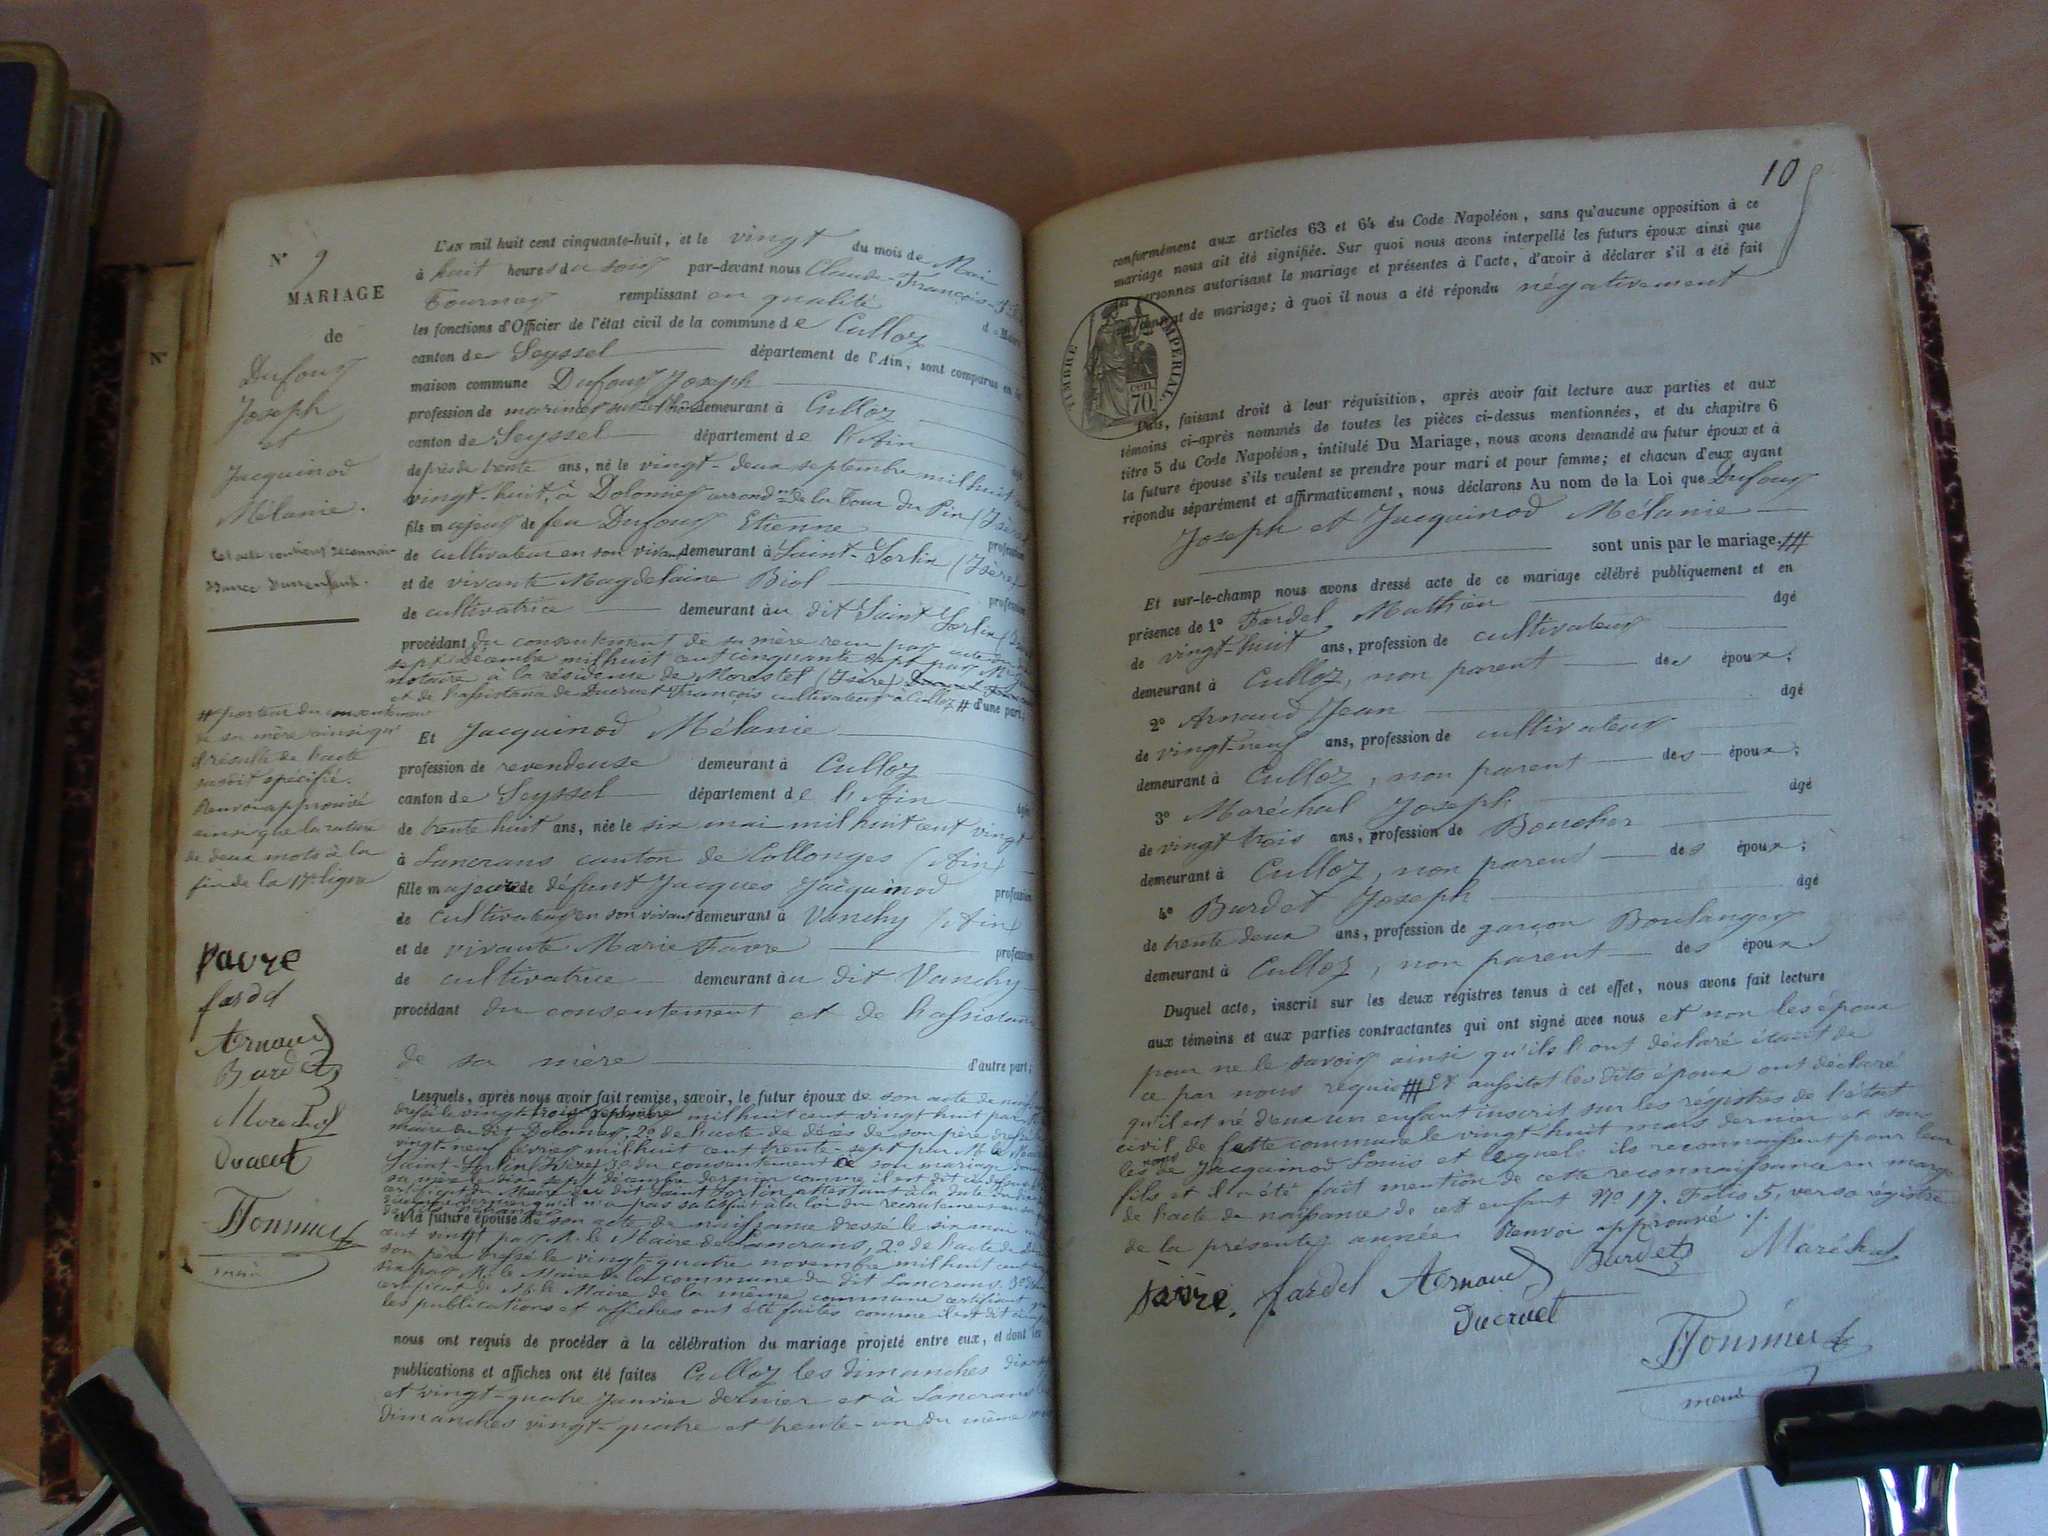 N° 9
MARIAGE
de
Dufour
Joseph
et
Jacquinod
Mélanie.
Cet acte contient reconnais-
sance d'un enfant.
L'AN mil huit cent cinquante-huit, et le vingt du mois de Mai
à huit heures du soir par-devant nous Claude-François
Fournier remplissant en qualité de Maire
les fonctions d'Officier de l'état civil de la commune de Culloz
canton de Seyssel département de l'Ain, sont comparus en la
maison commune Dufour Joseph
profession de marinier sur le Rhône demeurant à Culloz
canton de Seyssel département de l'Ain âgé
de près de trente ans, né le vingt-deux septembre mil huit cent
vingt-huit, à Dolomieu arrond^nt de la Tour du Pin (Isère)
fils majeur de feu Dufour Etienne profession
de cultivateur en son vivant demeurant à Saint-Sorlin (Isère)
et de vivante Magdelaine Biol profession
de cultivatrice demeurant au dit Saint Sorlin
procédant du consentement de sa mère reçu par acte du
sept Décembre mil huit cent cinquante sept par M^e
notaire à la résidence de Morestel (Isère)
et de l'assistance de Ducruet François cultivateur à Culloz # d'une part;
# porteur du consentement
de sa mère ainsi qu'il
résulte de l'acte
susdit spécifié.
Renvoi approuvé
ainsi que la rature
de deux mots à la
fin de la 17^e ligne
Et Jacquinod Mélanie
profession de revendeuse demeurant à Culloz
canton de Seyssel département de l'Ain âgée
de trente huit ans, née le six mai mil huit cent vingt
à Lancrans canton de Collonges (Ain)
fille majeure de défunt Jacques Jacquinod profession
de cultivateur en son vivant demeurant à Vanchy (Ain)
et de vivante Marie Favre profession
de cultivatrice demeurant au dit Vanchy
procédant du consentement et de l'assistance
de sa mère d'autre part;
Favre
fardel
Arnaud
Burdet
Maréchal
Ducruet
Fournier
maire
Lesquels, après nous avoir fait remise, savoir, le futur époux de son acte de naissance
dressé le vingt trois septembre mil huit cent vingt huit par
maire du dit Dolomieu, 2° de l'acte de décès de son père dressé le
vingt-neuf février mil huit cent trente-sept par M. le Maire
Saint-Sorlin (Isère) 3° du consentement de son mariage
sa mère le dix sept décembre dernier comme il est dit ci-dessus
certificat du Maire du dit Saint Sorlin attestant à la date du
qu'il n'a pas satisfait à la loi du recrutement
et la future épouse de son acte de naissance dressé le six mai
cent vingt par M. le Maire de Lancrans, 2° de l'acte de décès
son père dressé le vingt-quatre novembre mil huit cent
six par M. le Maire de la commune du dit Lancrans. 3°
certificat de M. le Maire de la même commune certifiant que
les publications et affiches ont été faites comme il est dit
nous ont requis de procéder à la célébration du mariage projeté entre eux, et dont les
publications et affiches ont été faites Culloz les dimanches
et vingt-quatre Janvier dernier et à Lancrans les
dimanches vingt-quatre et trente-un du même mois
10
conformément aux articles 63 et 64 du Code Napoléon, sans qu'aucune opposition à ce
mariage nous ait été signifiée. Sur quoi nous avons interpellé les futurs époux ainsi que
les personnes autorisant le mariage et présentes à l'acte, d'avoir à déclarer s'il a été fait
un contrat de mariage; à quoi il nous a été répondu négativement
TIMBRE IMPERIAL
70 cen.
Puis, faisant droit à leur réquisition, après avoir fait lecture aux parties et aux
témoins ci-après nommés de toutes les pièces ci-dessus mentionnées, et du chapitre 6
titre 5 du Code Napoléon, intitulé Du Mariage, nous avons demandé au futur époux et à
la future épouse s'ils veulent se prendre pour mari et pour femme; et chacun d'eux ayant
répondu séparément et affirmativement, nous déclarons Au nom de la Loi que Dufour
Joseph et Jacquinod Mélanie
sont unis par le mariage.
Et sur-le-champ nous avons dressé acte de ce mariage célébré publiquement et en
présence de 1° Fardel Mathieu âgé
de vingt-huit ans, profession de cultivateur
demeurant à Culloz, non parent des époux;
2° Arnaud Jean âgé
de vingt-neuf ans, profession de cultivateur
demeurant à Culloz, non parent des époux;
3° Maréchal Joseph âgé
de vingt trois ans, profession de Boucher
demeurant à Culloz, non parent des époux;
4° Burdet Joseph âgé
de trente deux ans, profession de garçon Boulanger
demeurant à Culloz, non parent des époux.
Duquel acte, inscrit sur les deux registres tenus à cet effet, nous avons fait lecture
aux témoins et aux parties contractantes qui ont signé avec nous et non les époux
pour ne le savoir ainsi qu'ils l'ont déclaré étant de
ce par nous requis # Et aussitôt les dits époux ont déclaré
qu'il est né d'eux un enfant inscrit sur les régistres de l'état
civil de cette commune le vingt-huit mars dernier et sous
les noms de Jacquinod Louis et lequel ils reconnaissent pour leur
fils et il a été fait mention de cette reconnaissance en marge
de l'acte de naissance de cet enfant N° 17. Folio 5, verso régistre
de la présente année Renvoi approuvé ./.
Favre. fardel Arnaud Burdet Maréchal
Ducruet
Fournier
maire